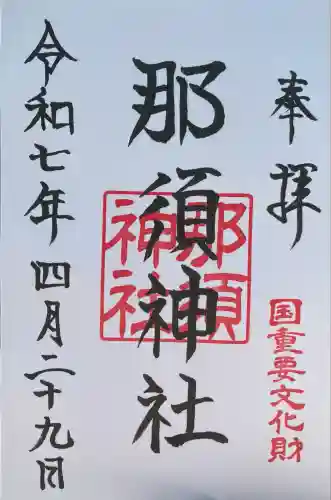 奉拝
国重要文化財
那須神社
那須神社
令和七年四月二十九日